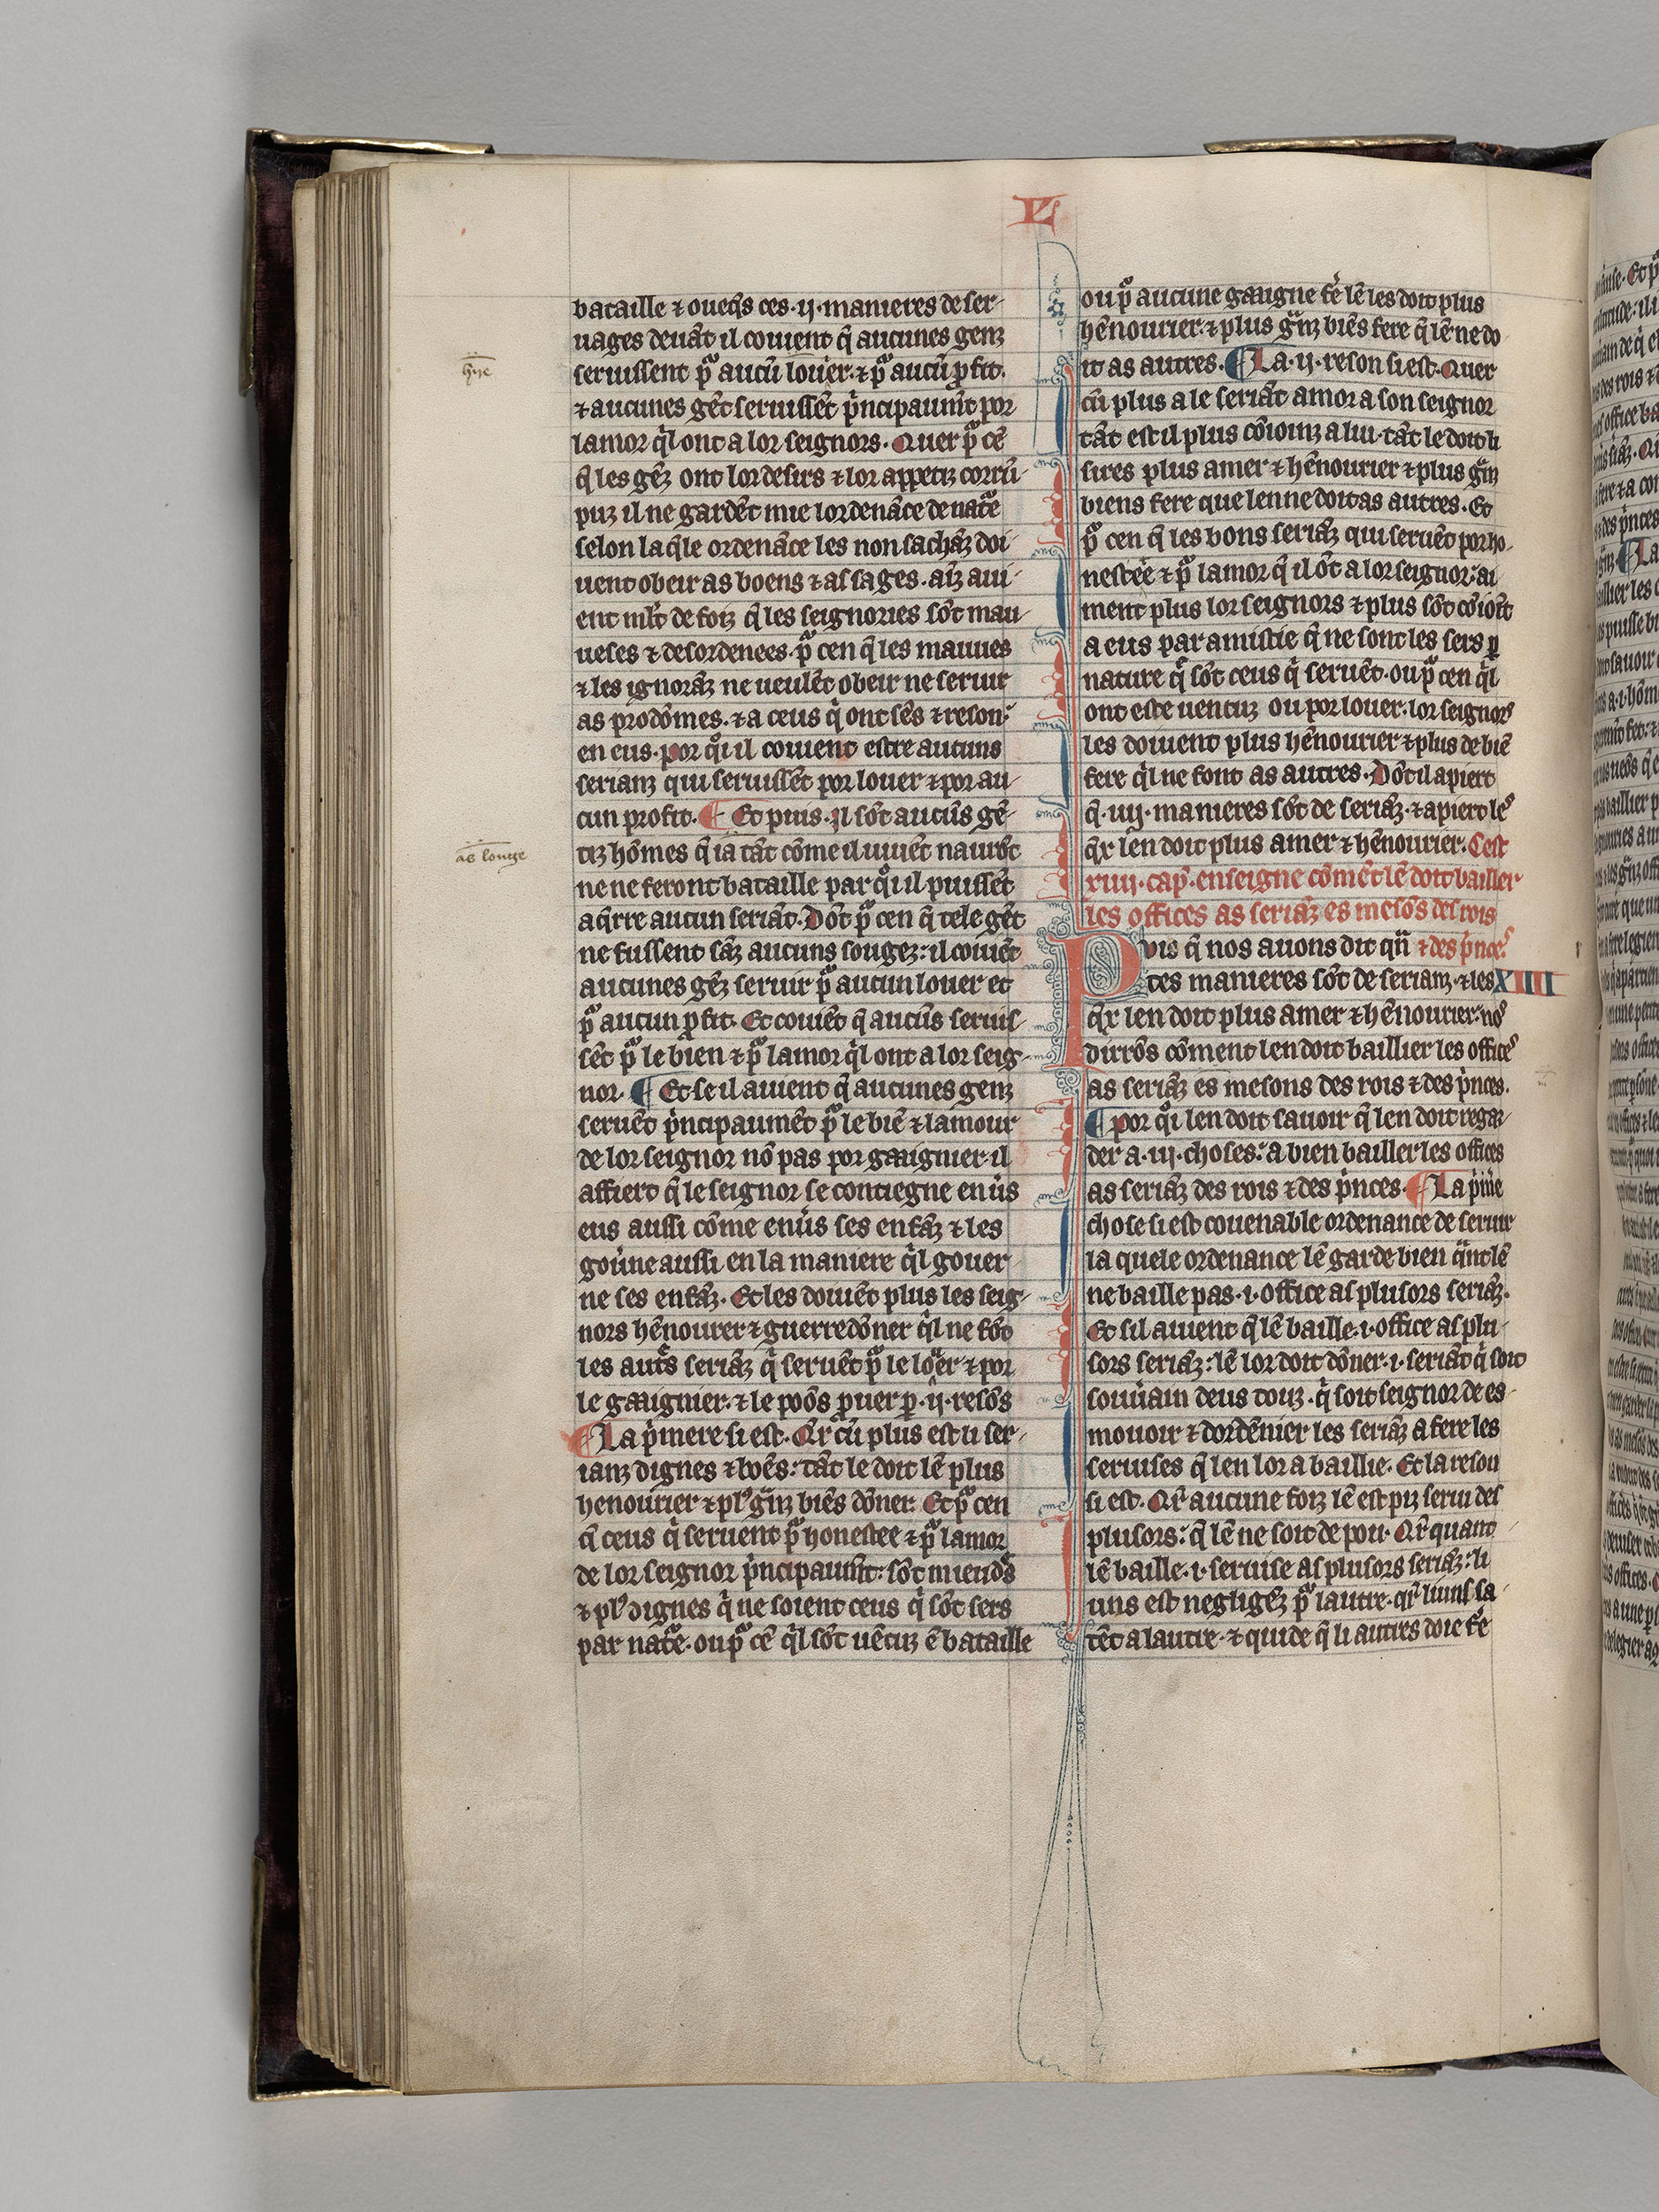 L
bataille ⁊ oueq̄s ces .ij. manieres de ser-
uages deuāt il couient q̄ aucunes genz
seruissent pͣ aucū louier. ⁊ pͣ aucū ꝓfit.
⁊ aucunes gēt seruissēt pͥncipaumēt por
lamor qͥl ont a lor seignors. Quer pͣ cē
q̄ les gēz ont lor desirs ⁊ lor appetiz corrū-
puz il ne gardēt mie lordenāce de natͤ
selon laq̄le ordenāce les non sachāz doi-
uent obeir as boens ⁊ as sages. aīz aui-
ent ml̄t de foiz q̄ les seignories sōt mau-
ueses ⁊ desordenees. pͣ cen q̄ les mauues
⁊ les ignorāz ne ueulēt obeir ne seruir
as prodōmes. ⁊ a ceus qͥ ont sēs ⁊ reson
en eus. por qͦi il couient estre aucuns
serianz qui seruissēt por louer ⁊ por au-
cun profit. ¶ Et puis. il sōt aucūs gē-
tiz hōmes q̄ ia tāt cōme il uiuēt naurōt
ne ne feront bataille par qͦi il puissēt
aq̄rre aucun seriāt. Dōt pͣ cen q̄ tele gēt
ne fussent sāz aucuns sougez: il couiēt
aucunes gēz seruir pͣ aucun louer et
pͣ aucun ꝓfit. Et couiēt q̄ aucūs seruis-
sēt pͣ le bien ⁊ pͣ lamor qͥl ont a lor seig-
nor. ¶ Et se il auient q̄ aucunes genz
seruēt pͥncipaumēt pͣ le biē ⁊ lamour
de lor seignor nō pas por gaaignier. il
affiert q̄ le seignor se contiegne enūs
eus aussi cōme enūs ses enfāz ⁊ les
goūne aussi en la maniere qͥl gouer-
ne ses enfāz. Et les doiuēt plus les seig-
nors hēnourer ⁊ guerredōner qͥl ne fōt
les autͤs seriāz qͥ seruēt pͣ le loͧer ⁊ por
le gaaignier. ⁊ le poōs ꝓuer ꝑ .ij. resōs
¶ La pͥmere si est. Qͬ cū plus est li ser-
ianz dignes ⁊ boēs: tāt le doit lē plus
henourier ⁊ plꝰ gͣnz biēs dōner. Et pͣ cen
q̄ ceus qͥ seruent pͣ honestee ⁊ pͣ lamor
de lor seignor pͥncipaumt: sōt miendͬs
⁊ plꝰ dignes qͥ ne soient ceus qͥ sōt sers
par natͤ. ou pͣ cē qͥl sōt uēcuz ē bataille
ou pͣ aucune gaaigne fͤ lē les doit plus
hēnourier. ⁊ plus gͣnz biēs fere q̄ lē ne do-
it as autres. ¶ La .ij. reson si est. Quer
cū plus a le seriāt amor a son seignor
tāt est il plus cōioinz a lui. tāt le doit li
sires plus amer ⁊ hēnourier ⁊ plus gͣnz
biens fere que len ne doit as autres. Et
pͣ cen q̄ les bons seriāz qui seruēt por ho-
nestee ⁊ pͣ lamor q̄ il ōt a lor seignor: ai-
ment plus lor seignors ⁊ plus sōt cōioīt
a eus par amistie q̄ ne sont les sers ꝑ
nature qͥ sōt ceus qͥ seruēt. ou pͣ cen qͥl
ont este uencuz ou por louer: lor seignors
les doiuent plus hēnourier ⁊ plus de biē
fere qͥl ne font as autres. Dōt il apiert
q̄ .iiij. manieres sōt de seriāz. ⁊ apiert leˢ
qͣx len doit plus amer ⁊ hēnourier. Cest
xiiij. cap̄. enseigne cōmēt lē doit bailler
les offices as seriāz es mesōs des rois
⁊ des pͥnceˢ
Puis q̄ nos auons dit qn̄-
tes manieres sōt de serianz. ⁊ les
XIIII
qͣx len doit plus amer ⁊ hēnourier: noˢ
dirrōs cōment len doit baillier les officeˢ
as seriāz es mesons des rois ⁊ des pͥnces.
¶ por qͦi len doit sauoir q̄ len doit regar-
der a .iij. choses: a bien bailler les offices
as seriāz des rois ⁊ des pͥnces. ¶ La pͥmͤe
chose si est couenable ordenance de seruir
la quele ordenance lē garde bien qͣnt lē
ne baille pas .i. office as plusors seriāz.
Et sil auient q̄ lē baille .i. office as plu-
sors seriāz: lē lor doit dōner .i. seriāt qͥ soit
souuͥain deus touz. qͥ soit seignor de es-
mouoir ⁊ dordēnier les seriāz a fere les
seruises q̄ len lor a baillie. Et la reson
si est. Qͬ aucune foiz lē est piz serui des
plusors: q̄ lē ne soit de pou. Qͬ quant
lē baille .i. seruise as plusors seriāz: li
uns est negligēz pͣ lautre. qͬ li uns sa-
tēt a lautre. ⁊ quide q̄ li autres doie fͤe